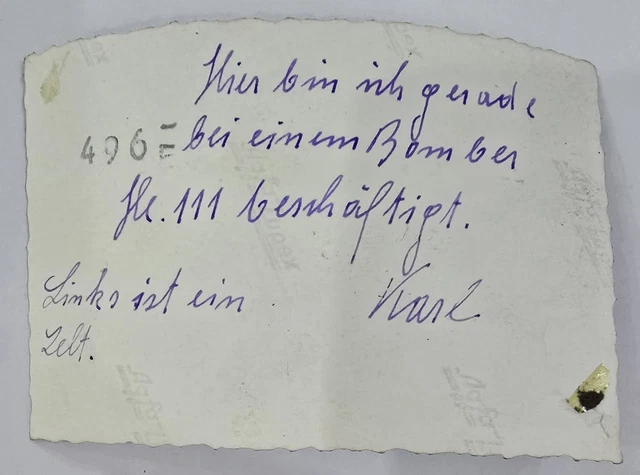 Hier bin ich gerade
496= bei einem Bomber
He. 111 beschäftigt.
Links ist ein
Zelt.
Karl